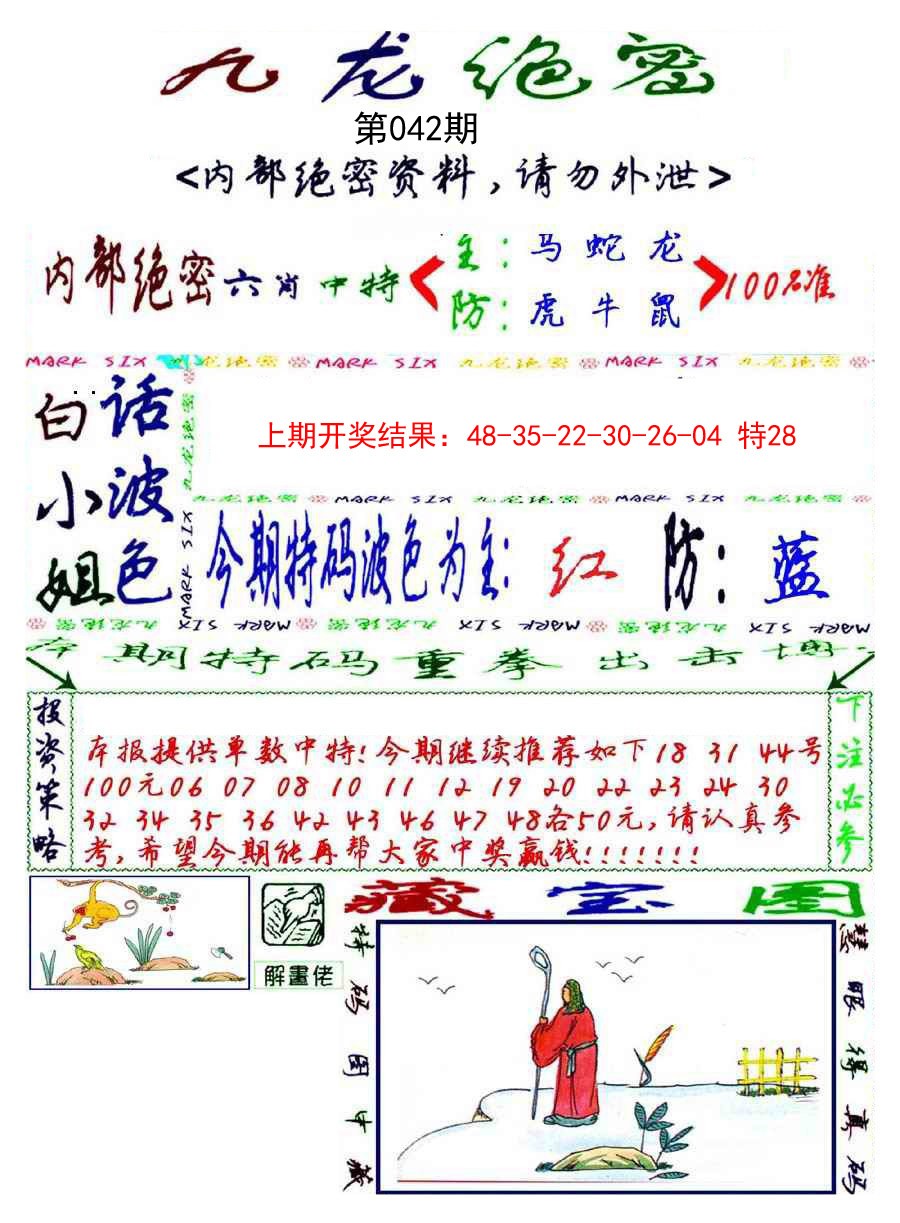 九龙绝密
第042期
<内部绝密资料,请勿外泄>
内部绝密六肖中特
主:马蛇龙
防:虎牛鼠
100%准
MARK SIX 九龙绝密 MARK SIX 九龙绝密 MARK SIX 九龙绝密
白话
小波
姐色
九龙绝密
MARK SIX
上期开奖结果:48-35-22-30-26-04 特28
九龙绝密 MARK SIX 九龙绝密 MARK SIX 九龙绝密
今期特码波色为主:红 防:蓝
九龙绝密 MARK SIX 九龙绝密 MARK SIX 九龙绝密 MARK SIX
本期特码重拳出击博
投资策略
本报提供单数中特!今期继续推荐如下18 31 44号
100元06 07 08 10 11 12 19 20 22 23 24 30
32 34 35 36 42 43 46 47 48各50元,请认真参
考,希望今期能再帮大家中奖赢钱!!!!!!!
下注必参
解畫佬
藏宝图
特码图中藏
慧眼得真码